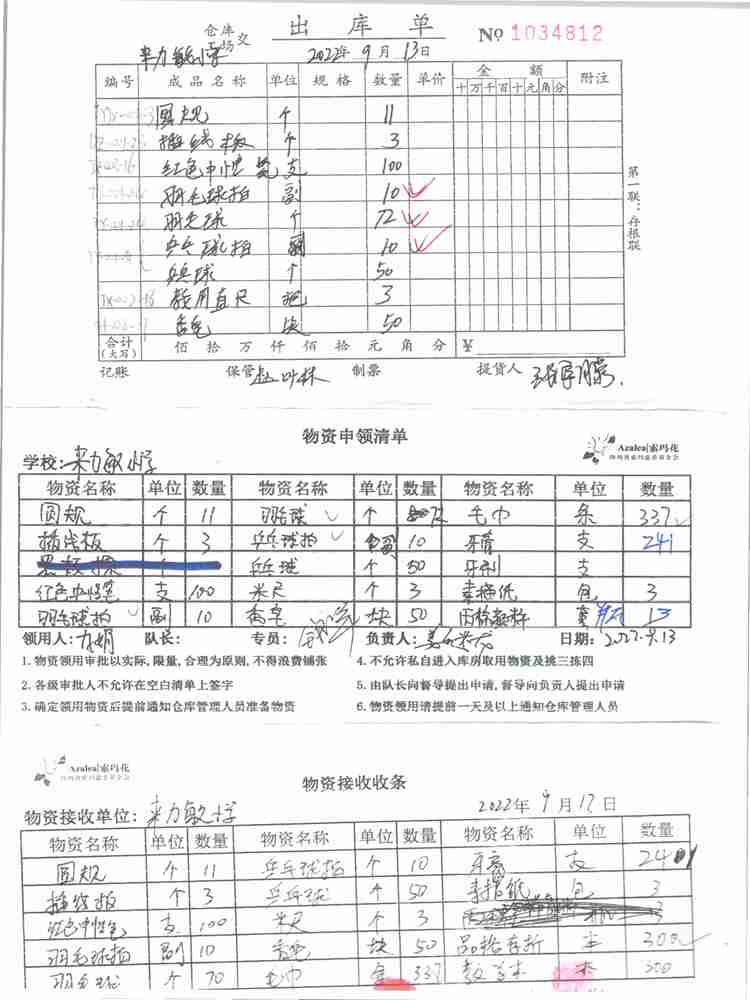 仓库
市场 交
出 库 单
№ 1034812
来力敏小学
2022年 9月 13日
编号 成品名称 单位 规格 数量 单价 金额 附注
十万千百十元角分
圆规 个 11
插线板 个 3
红色中性笔 支 100
羽毛球拍 副 10
羽毛球 个 72
乒乓球拍 副 10
乒乓球 个 50
教用直尺 把 3
香皂 块 50
合计(大写) 佰 拾 万 仟 佰 拾 元 角 分 ¥
第一联:存根联
记账 保管 制票 提货人
物资申领清单
Azalea|索玛花
学校:来力敏小学
物资名称 单位 数量 物资名称 单位 数量 物资名称 单位 数量
圆规 个 11 羽毛球 个 72 毛巾 条 337
插线板 个 3 乒乓球拍 副 10 牙膏 支 241
个 乒乓球 个 50 牙刷 支
红色中性笔 支 100 米尺 个 3 手提纸 包 3
羽毛球拍 副 10 香皂 块 50 13
领用人: 队长: 专员: 负责人: 日期:2022.9.13
1. 物资领用审批以实际,限量,合理为原则,不得浪费铺张
4. 不允许私自进入库房取用物资及挑三拣四
2. 各级审批人不允许在空白清单上签字
5. 由队长向督导提出申请,督导向负责人提出申请
3. 确定领用物资后提前通知仓库管理人员准备物资
6. 物资领用请提前一天及以上通知仓库管理人员
Azalea|索玛花
物资接收收条
物资接收单位:来力敏小学
2022年 9月17日
物资名称 单位 数量 物资名称 单位 数量 物资名称 单位 数量
圆规 个 11 乒乓球拍 个 10 牙膏 支
插线板 个 3 乒乓球 个 50 手提纸 包 3
红色中性笔 支 100 米尺 个 3
羽毛球拍 副 10 香皂 块 50 本 300
羽毛球 个 70 毛巾 337 本 300